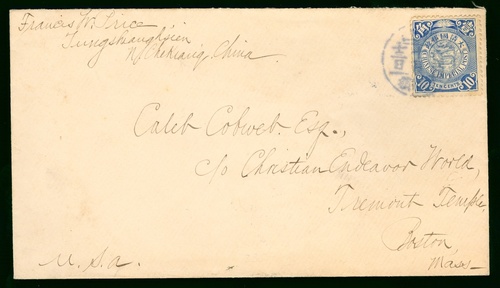 Francis W. Price
Tungshianghsien
N. Chekiang, China
大清國郵政
10 CENTS 10
Caleb Cobweb Esq.,
c/o Christian Endeavor World,
Tremont Temple,
Boston,
Mass-
U.S.A.